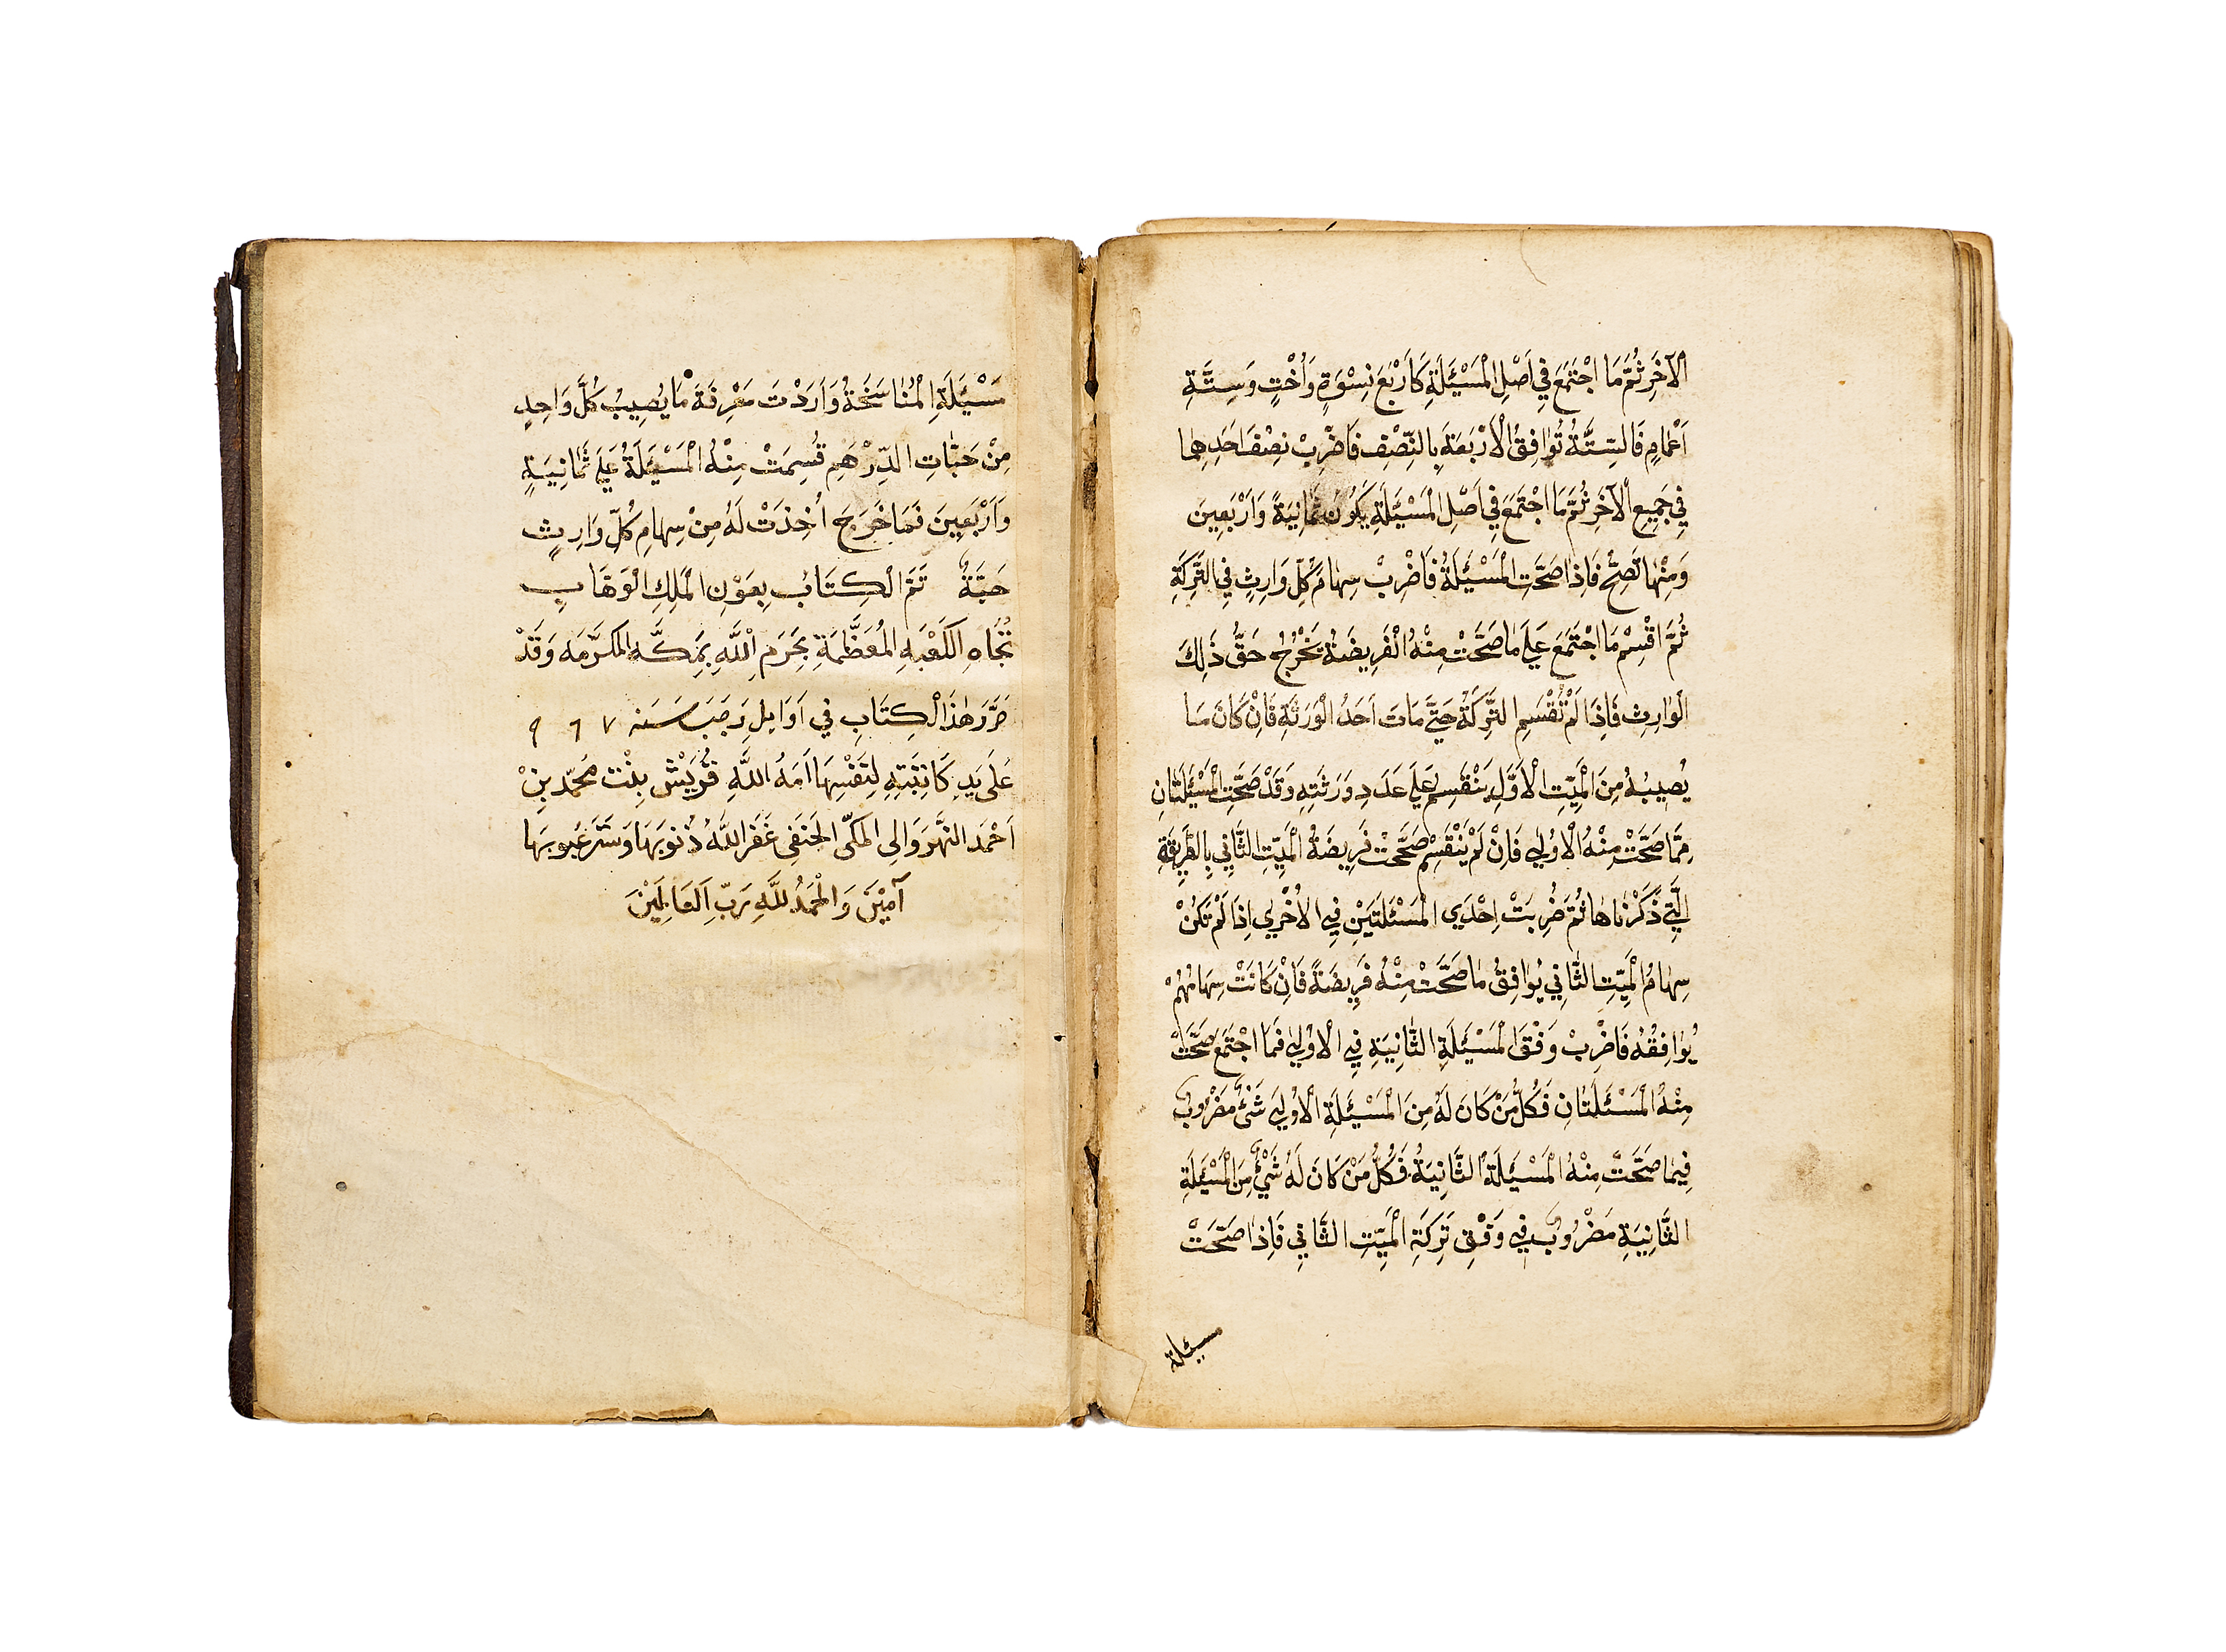 الْآخَرِ ثُمَّ مَا اجْتَمَعَ فِي اَصْلِ الْمَسْئَلَةِ كَاَرْبَعِ نِسْوَةٍ وَاُخْتٍ وَسِتَّةِ
اَعْمَامٍ فَالسِّتَّةُ تُوَافِقُ الْاَرْبَعَةَ بِالنِّصْفِ فَاضْرِبْ نِصْفَ اَحَدِهِمَا
فِي جَمِيعِ الْآخَرِ ثُمَّ مَا اجْتَمَعَ فِي اَصْلِ الْمَسْئَلَةِ يَكُونُ ثَمَانِيَةً وَاَرْبَعِينَ
وَمِنْهَا تَصِحُّ فَاِذَا صَحَّتِ الْمَسْئَلَةُ فَاضْرِبْ سِهَامَ كُلِّ وَارِثٍ فِي التَّرِكَةِ
ثُمَّ اقْسِمْ مَا اجْتَمَعَ عَلَي مَا صَحَّتْ مِنْهُ الْفَرِيضَةُ يَخْرُجُ حَقُّ ذَلِكَ
الْوَارِثِ فَاِذَا لَمْ تُقْسَمِ التَّرِكَةُ حَتَّي مَاتَ اَحَدُ الْوَرَثَةِ فَاِنْ كَانَ مَا
يُصِيبُهُ مِنَ الْمَيِّتِ الْاَوَّلِ يَنْقَسِمُ عَلَي عَدَدِ وَرَثَتِهِ وَقَدْ صَحَّتِ الْمَسْئَلَتَانِ
مِمَّا صَحَّتْ مِنْهُ الْاُولَي فَاِنْ لَمْ يَنْقَسِمْ صَحَّحْتَ فَرِيضَةَ الْمَيِّتِ الثَّانِي بِالطَّرِيقَةِ
الَّتِي ذَكَرْنَاهَا ثُمَّ ضُرِبَتْ اِحْدَي الْمَسْئَلَتَيْنِ فِي الْاُخْرَي اِذَا لَمْ تَكُنْ
سِهَامُ الْمَيِّتِ الثَّانِي يُوَافِقُ مَا صَحَّتْ مِنْهُ فَرِيضَةً فَاِنْ كَانَتْ سِهَامُهُمْ
يُوَافِقُهُ فَاضْرِبْ وَفْقَ الْمَسْئَلَةِ الثَّانِيَةِ فِي الْاُولَي فَمَا اجْتَمَعَ صَحَّتْ
مِنْهُ الْمَسْئَلَتَانِ فَكُلُّ مَنْ كَانَ لَهُ مِنَ الْمَسْئَلَةِ الْاُولَي شَيْءٌ مَضْرُوبٌ
فِيمَا صَحَّتْ مِنْهُ الْمَسْئَلَةُ الثَّانِيَةُ فَكُلُّ مَنْ كَانَ لَهُ شَيْءٌ مِنَ الْمَسْئَلَةِ
الثَّانِيَةِ مَضْرُوبٌ فِي وَفْقِ تَرِكَةِ الْمَيِّتِ الثَّانِي فَاِذَا صَحَّتْ
مسئلة
مَسْئَلَةِ الْمُنَاسَخَةُ وَاَرَدْتَ مَعْرِفَةَ مَا يُصِيبُ كُلَّ وَاحِدٍ
مِنْ حَبَّاتِ الدِّرْهَمِ قُسِمَتْ مِنْهُ الْمَسْئَلَةُ عَلَي ثَمَانِيَةٍ
وَاَرْبَعِينَ فَمَا خَرَجَ اُخِذَتْ لَهُ مِنْ سِهَامِ كُلِّ وَارِثٍ
حَبَّةٌ تَمَّ الْكِتَابُ بِعَوْنِ الْمَلِكِ الْوَهَّابِ
تُجَاهِ الْكَعْبَةِ الْمُعَظَّمَةِ بِحَرَمِ اللَّهِ بِمَكَّه المكرَّمه وَقَدْ
حَرَّرَ هٰذَا الْكِتَابِ في اَوَايِلِ رَجَبَ سَنه ٩٦٧
عَلَى يَدِ كَاتِبَتِهِ لِنَفْسِهَا اَمَةُ اللَّهِ قُرَيْش بِنْت مُحَمّد بِنْ
اَحْمَد النهْرَوَالى المكّى الحَنَفى غَفَرَ اللَّهُ ذُنُوبَهَا وَسَتَرَ عُيُوبَهَا
آمِيْنَ وَالْحَمْدُ للَّهِ رَبِّ العَالَمِيْنَ